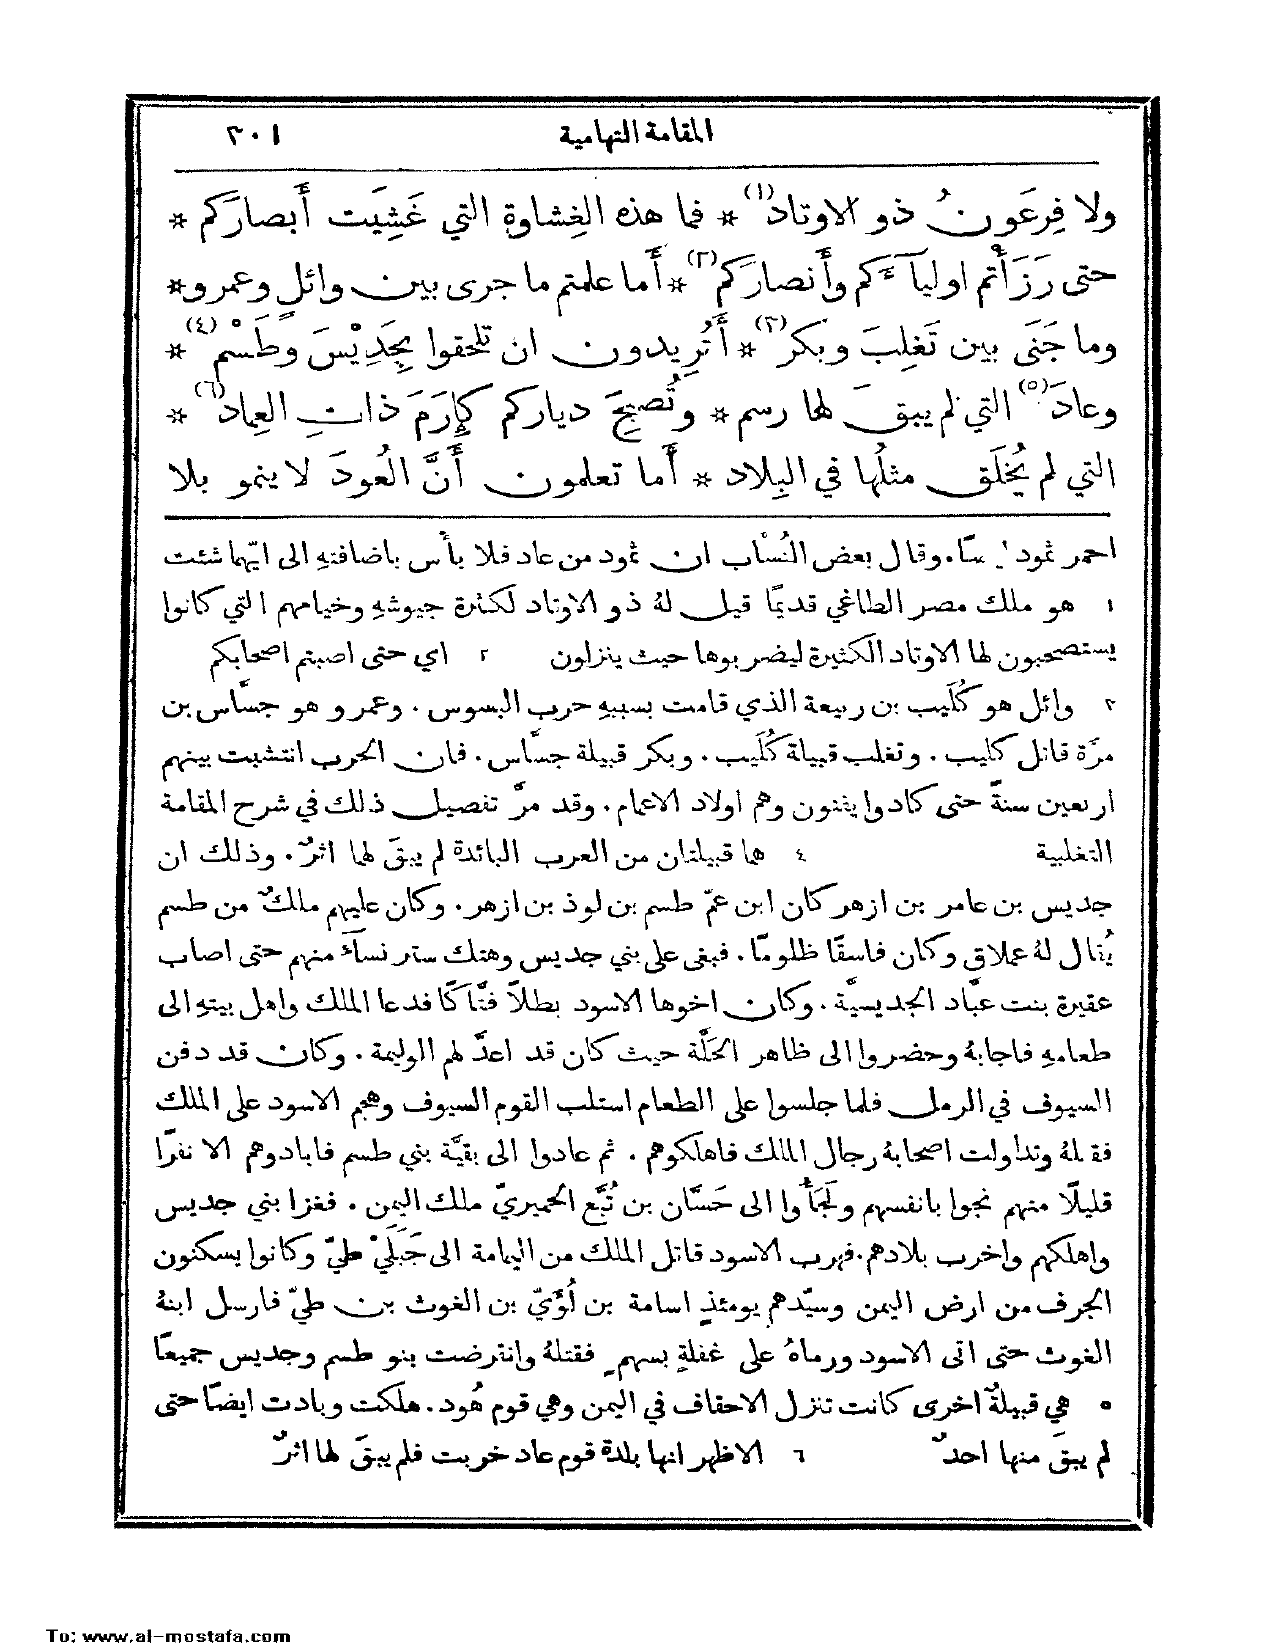 المقامة التهامية
٣٠١
ولا فِرعَونُ ذو الاوتادِ(١) * فما هذه الغِشاوة التي غَشِيَت أَبصارَكم *
حتى رَزَأْتم اوليآءَكم وأَنصارَكم(٢) * أَما علمتم ما جرى بين وائل وعمرو *
وما جَنَى بين تَغلِبَ وبكرٍ(٣) * أَتُرِيدون ان تلحقوا بِجَدِيْسَ وطَسْمٍ(٤) *
وعادَ(٥) التي لم يبقَ لها رسم * وتُصبِحَ دياركم كإِرَمَ ذاتِ العِمادِ(٦) *
التي لم يُخلَق مثلُها في البِلاد * أَما تعلمون أَنَّ العُودَ لا ينمو بلا
احمر ثمود وقال بعض النُسّاب ان ثمود من عاد فلا بأس باضافتهِ الى ايّهما شئت
١ هو ملك مصر الطاغي قديمًا قيل لهُ ذو الاوتاد لكثرة جيوشهِ وخيامهم التي كانوا
يستصحبون لها الاوتاد الكثيرة ليضربوها حيث ينزلون ٢ اي حتى اصبتم اصحابكم
٣ وائل هو كُلَيب بن ربيعة الذي قامت بسببهِ حرب البسوس . وعمرو هو جسَّاس بن
مرّة قاتل كليب . وتغلب قبيلة كُلَيب . وبكر قبيلة جسَّاس . فان الحرب انتشبت بينهم
اربعين سنةً حتى كادوا يفنون وهم اولاد الاعمام . وقد مرَّ تفصيل ذلك في شرح المقامة
التغلبية ٤ هما قبيلتان من العرب البائدة لم يبقَ لها اثرٌ . وذلك ان
جديس بن عامر بن ازهر كان ابن عمّ طسم بن لوذ بن ازهر . وكان عليهم ملكٌ من طسم
يُقال لهُ عملاق وكان فاسقًا ظلومًا . فبغى على بني جديس وهتك ستر نسآءٍ منهم حتى اصاب
عفيرة بنت عبَّاد الجديسيَّة . وكان اخوها الاسود بطلًا فتَّاكًا فدعا الملك واهل بيتهِ الى
طعامهِ فاجابهُ وحضروا الى ظاهر الحَلَّة حيث كان قد اعدَّ لهم الوليمة . وكان قد دفن
السيوف في الرمل فلما جلسوا على الطعام استلب القوم السيوف وهجم الاسود على الملك
فقتلهُ وتداولت اصحابهُ رجال الملك فاهلكوهم . ثم عادوا الى بقيَّة بني طسم فابادوهم الا نفرًا
قليلًا منهم نجوا بانفسهم ولَجَأُوا الى حَسَّان بن تُبَّع الحميريّ ملك اليمن . فغزا بني جديس
واهلكهم واخرب بلادهم . فهرب الاسود قاتل الملك من اليمامة الى جَبَلَيْ طيّ وكانوا يسكنون
الجرف من ارض اليمن وسيّدهم يومئذٍ اسامة بن لُؤَيّ بن الغوث بن طيّ فارسل ابنهُ
الغوث حتى اتى الاسود ورماهُ على غفلةٍ بسهمٍ فقتلهُ وانقرضت بنو طسم وجديس جميعًا
٥ هي قبيلةٌ اخرى كانت تنزل الاحقاف في اليمن وهي قوم هُود . هلكت وبادت ايضًا حتى
لم يبقَ منها احدٌ ٦ الاظهر انها بلدة قوم عاد خربت فلم يبقَ لها اثرٌ
To: www.al-mostafa.com